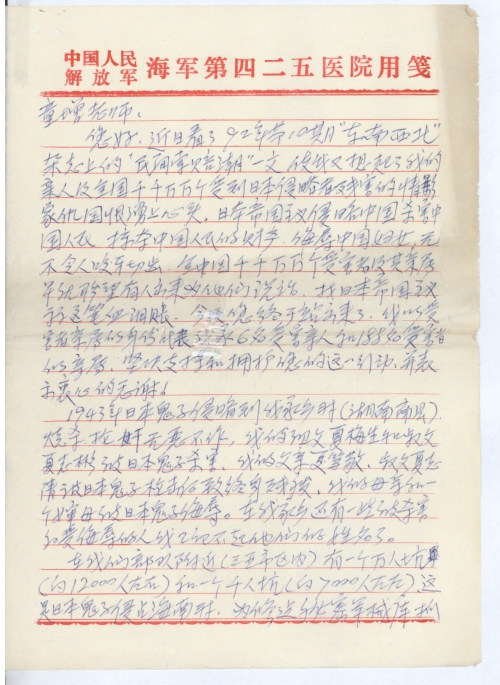 中国人民
解放军 海军第四二五医院用笺
童增老师：
您好，近日看了92年第10期"东南西北"
杂志上的"民间索赔潮"一文，使我又想起了我的
亲人及全国千千万万个受到日本侵略者残害的情影
家仇国恨涌上心头，日本帝国主义侵略中国杀害中
国人民，掠夺中国人民的财产，侮辱中国妇女，无
不令人咬牙切齿，全中国千千万万个受害者及其亲属
早就盼望有人出来为他们说话，找日本帝国主义
算这笔血泪账，今天您终于站出来了，我以受
害者亲属的身份代表 6名受害亲人和188名受害者
的亲属，坚决支持和拥护您的这一行动，并表
示衷心的感谢！
1943年日本鬼子侵略到我家乡时（湖南南县）
烧杀抢奸无恶不作，我的祖父夏梅生和叔父
夏志彬被日本鬼子杀害，我的父亲夏 叔父夏志
清被日本鬼子枪击伤致终身残疾，我的母亲和一
个婶母被日本鬼子侮辱。在我家乡还有一些被杀害
和受侮辱的人我已记不起他们的姓名了。
在我们部队附近（三五平区内）有一个万人坑
（约12000人左右）和一个千人坑（约7000人左右）这
是日本鬼子侵占海南时，为修造 军械库